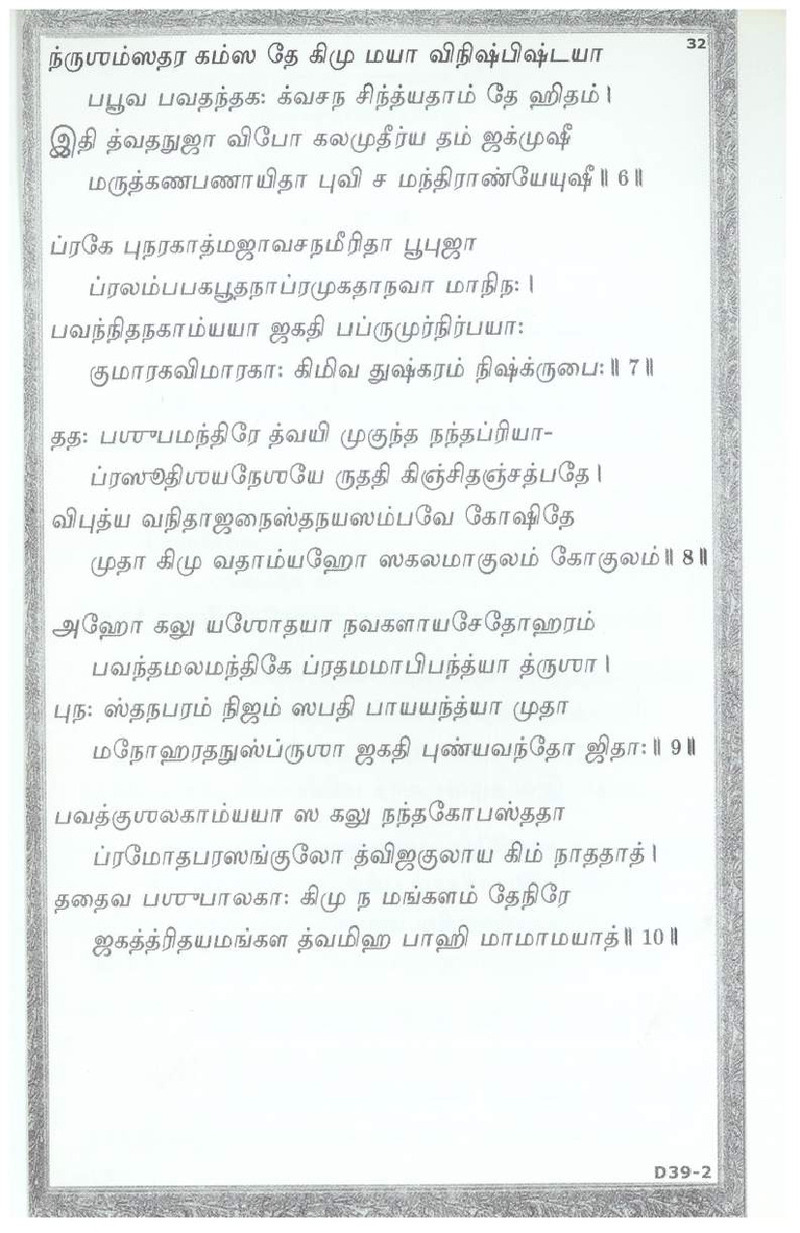 32
ந்ருஶம்ஸதர கம்ஸ தே கிமு மயா விநிஷ்பிஷ்டயா
பபூவ பவதந்தக: க்வசந சிந்த்யதாம் தே ஹிதம்।
இதி த்வதநுஜா விபோ கலமுதீர்ய தம் ஜக்முஷீ
மருத்கணபணாயிதா புவி ச மந்திராண்யேயுஷீ॥ 6॥
ப்ரகே புநரகாத்மஜாவசநமீரிதா பூபுஜா
ப்ரலம்பபகபூதநாப்ரமுகதாநவா மாநிந:।
பவந்நிதநகாம்யயா ஜகதி பப்ருமுர்நிர்பயா:
குமாரகவிமாரகா: கிமிவ துஷ்கரம் நிஷ்க்ருபை:॥ 7॥
தத: பஶுபமந்திரே த்வயி முகுந்த நந்தப்ரியா-
ப்ரஸூதிஶயநேஶயே ருததி கிஞ்சிதஞ்சத்பதே।
விபுத்ய வநிதாஜநைஸ்தநயஸம்பவே கோஷிதே
முதா கிமு வதாம்யஹோ ஸகலமாகுலம் கோகுலம்॥ 8॥
அஹோ கலு யஶோதயா நவகளாயசேதோஹரம்
பவந்தமலமந்திகே ப்ரதமமாபிபந்த்யா த்ருஶா।
புந: ஸ்தநபரம் நிஜம் ஸபதி பாயயந்த்யா முதா
மநோஹரதநுஸ்ப்ருஶா ஜகதி புண்யவந்தோ ஜிதா:॥ 9॥
பவத்குஶலகாம்யயா ஸ கலு நந்தகோபஸ்ததா
ப்ரமோதபரஸங்குலோ த்விஜகுலாய கிம் நாததாத்।
ததைவ பஶுபாலகா: கிமு ந மங்களம் தேநிரே
ஜகத்த்ரிதயமங்கள த்வமிஹ பாஹி மாமாமயாத்॥ 10॥
D39-2